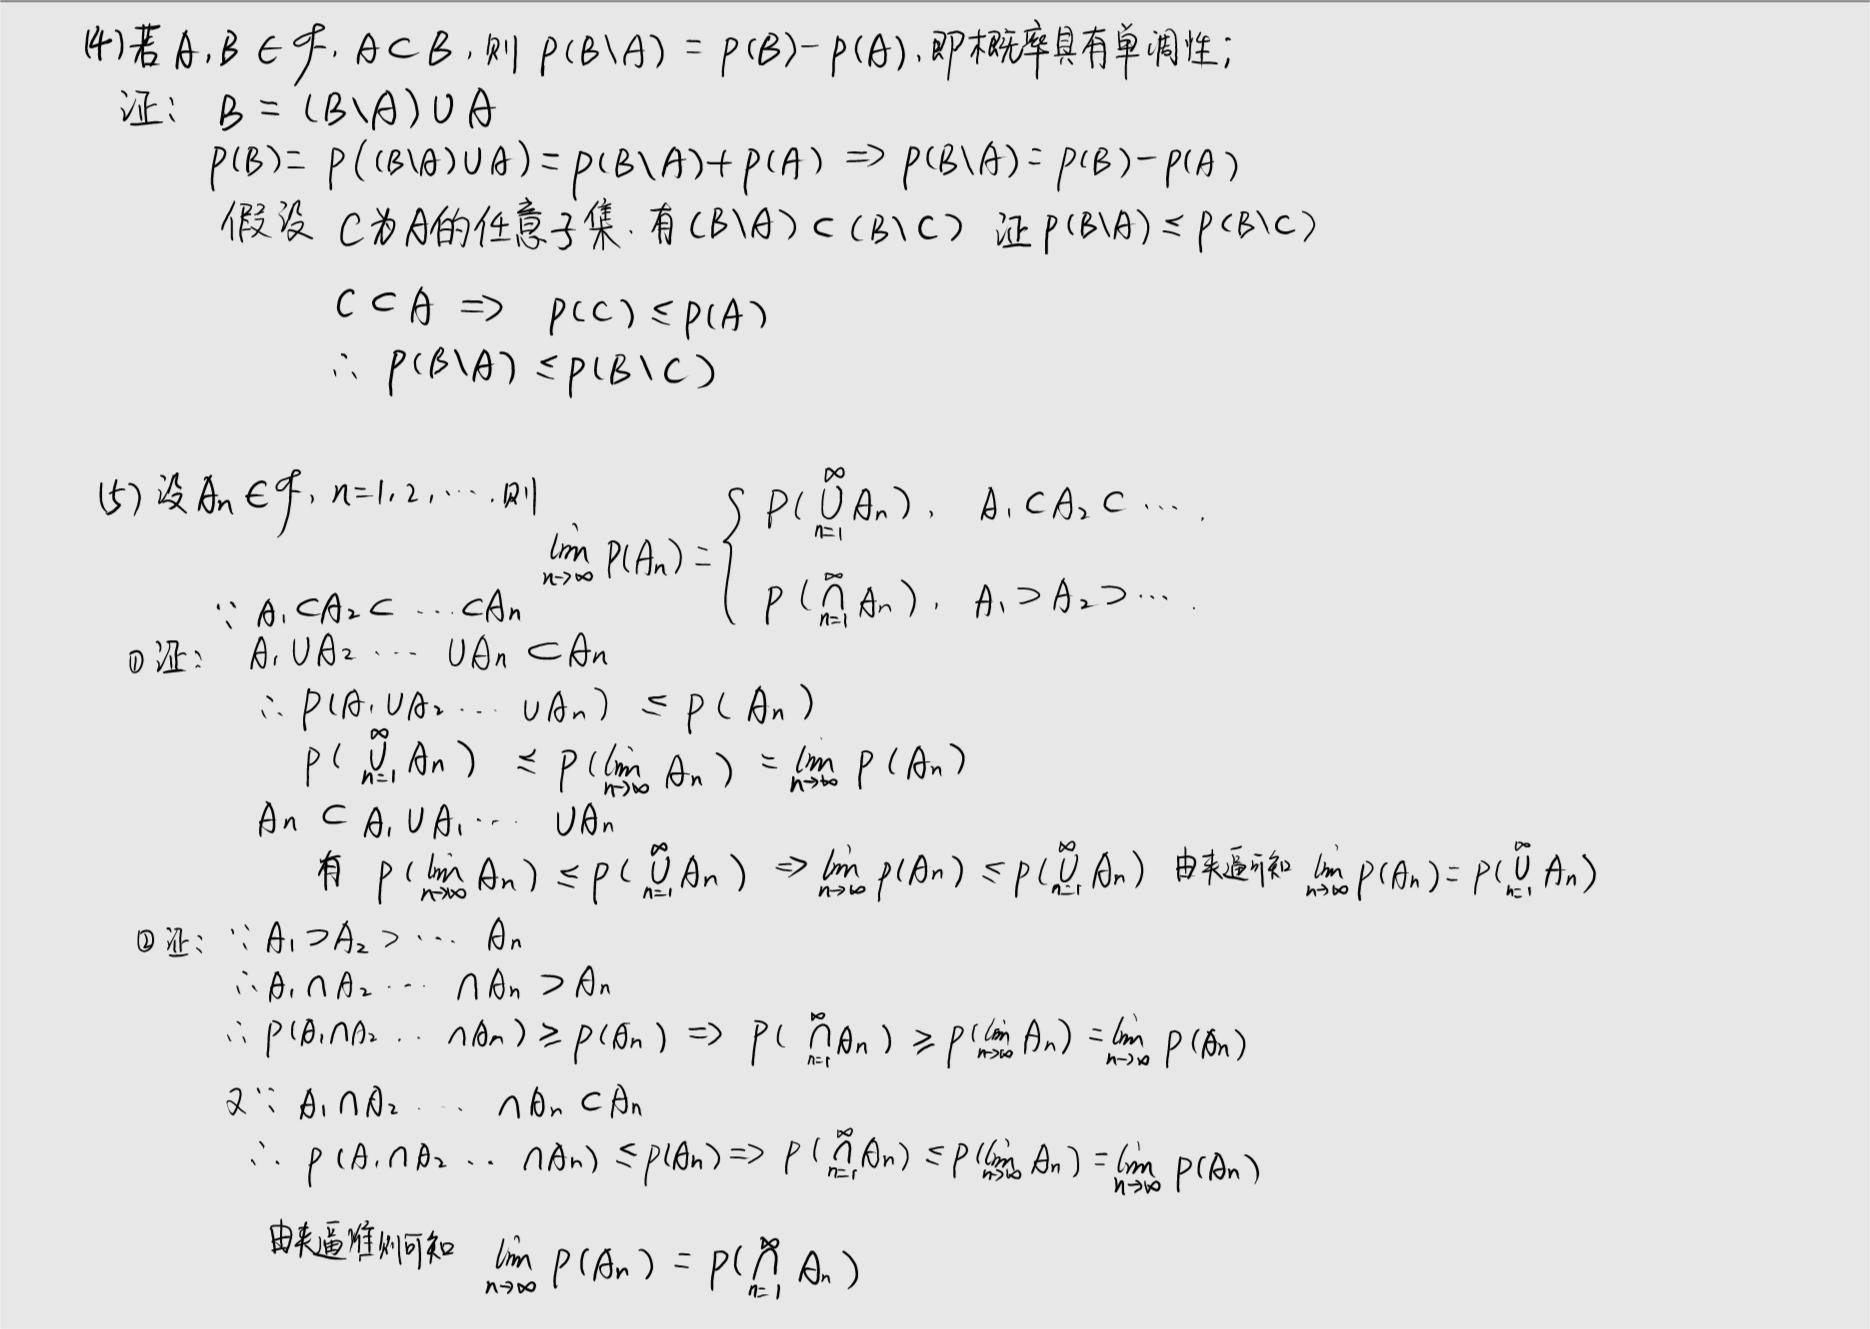 (4) 若 A, B ∈ ℱ, A ⊂ B, 则 P(B\A) = P(B) - P(A), 即概率具有单调性;
证: B = (B\A) ∪ A
P(B) = P((B\A)∪A) = P(B\A) + P(A) => P(B\A) = P(B) - P(A)
假设 C为A的任意子集. 有 (B\A) ⊂ (B\C) 证 P(B\A) ≤ P(B\C)
C ⊂ A => P(C) ≤ P(A)
∴ P(B\A) ≤ P(B\C)
(5) 设 Aₙ ∈ ℱ, n=1, 2, …. 则
lim_{n→∞} P(Aₙ) = { P(⋃_{n=1}^{∞} Aₙ), A₁ ⊂ A₂ ⊂ ….
P(⋂_{n=1}^{∞} Aₙ), A₁ ⊃ A₂ ⊃ ….
∵ A₁ ⊂ A₂ ⊂ … ⊂ Aₙ
① 证: A₁ ∪ A₂ … ∪ Aₙ ⊂ Aₙ
∴ P(A₁ ∪ A₂ … ∪ Aₙ) ≤ P(Aₙ)
P(⋃_{n=1}^{∞} Aₙ) ≤ P(lim_{n→∞} Aₙ) = lim_{n→∞} P(Aₙ)
Aₙ ⊂ A₁ ∪ A₁ … ∪ Aₙ
有 P(lim_{n→∞} Aₙ) ≤ P(⋃_{n=1}^{∞} Aₙ) => lim_{n→∞} P(Aₙ) ≤ P(⋃_{n=1}^{∞} Aₙ) 由夹逼可知 lim_{n→∞} P(Aₙ) = P(⋃_{n=1}^{∞} Aₙ)
② 证: ∵ A₁ ⊃ A₂ > … Aₙ
∴ A₁ ∩ A₂ … ∩ Aₙ ⊃ Aₙ
∴ P(A₁∩A₂ .. ∩Aₙ) ≥ P(Aₙ) => P(⋂_{n=1}^{∞} Aₙ) ≥ P(lim_{n→∞} Aₙ) = lim_{n→∞} P(Aₙ)
又∵ A₁ ∩ A₂ … ∩ Aₙ ⊂ Aₙ
∴ P(A₁∩A₂ .. ∩Aₙ) ≤ P(Aₙ) => P(⋂_{n=1}^{∞} Aₙ) ≤ P(lim_{n→∞} Aₙ) = lim_{n→∞} P(Aₙ)
由夹逼准则可知 lim_{n→∞} P(Aₙ) = P(⋂_{n=1}^{∞} Aₙ)